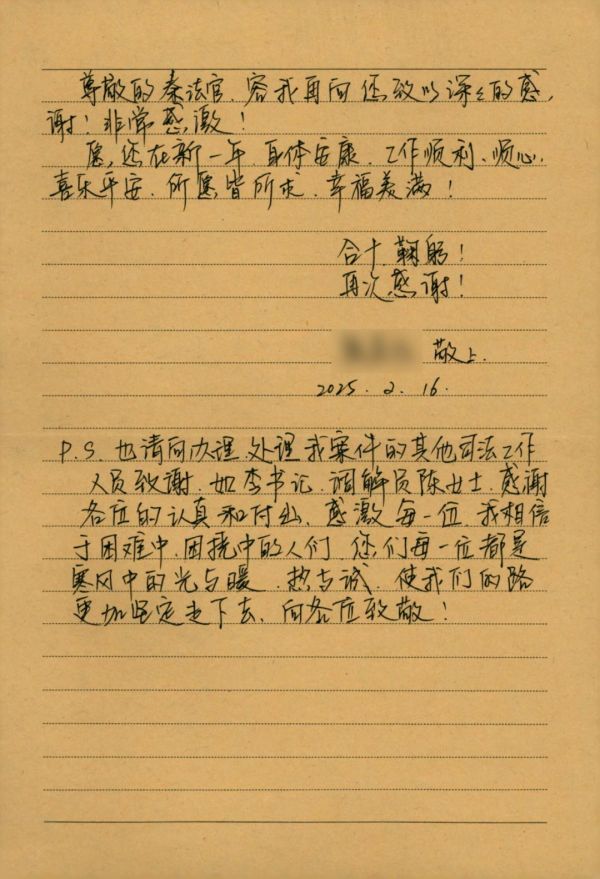 尊敬的秦法官,容我再向您致以深深的感
谢!非常感激!
愿,您在新一年,身体安康,工作顺利、顺心,
喜乐平安,所愿皆所求,幸福美满!
合十鞠躬!
再次感谢!
敬上.
2025.2.16.
P.S. 也请向办理、处理我案件的其他司法工作
人员致谢,如李书记、调解员陈女士,感谢
各位的认真和付出,感激每一位,我相信
于困难中,困扰中的人们,您们每一位都是
寒风中的光与暖,热与诚,使我们的路
更加坚定走下去,向各位致敬!